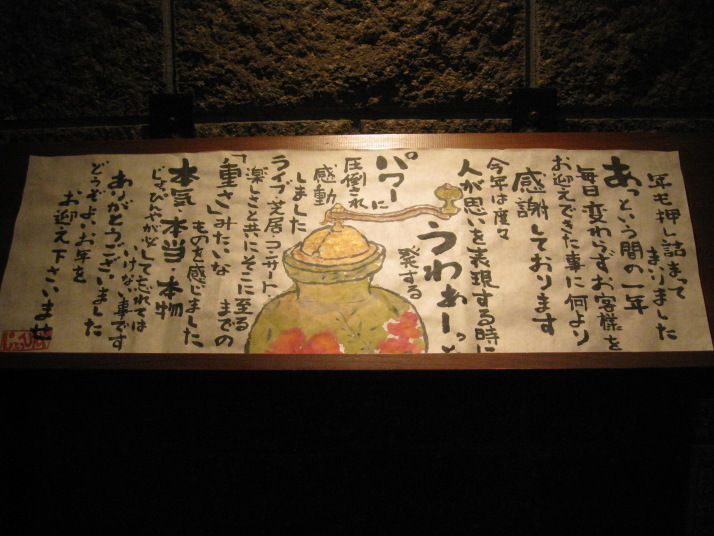 年も押し詰まって
まいりました
あっという間の一年
毎日変わらずお客様を
お迎えできた事に何より
感謝しております
今年は度々
人が思いを表現する時に
うわぁーっと
発する
パワーに
圧倒され
感動
しました
ライブ・芝居・コンサート
楽しさと共にそこに至る
までの
「重さ」みたいな
ものを感じました
本気・本当・本物
じょびやが決して忘れては
いけない事です
ありがとうございました
どうぞよいお年を
お迎え下さいませ